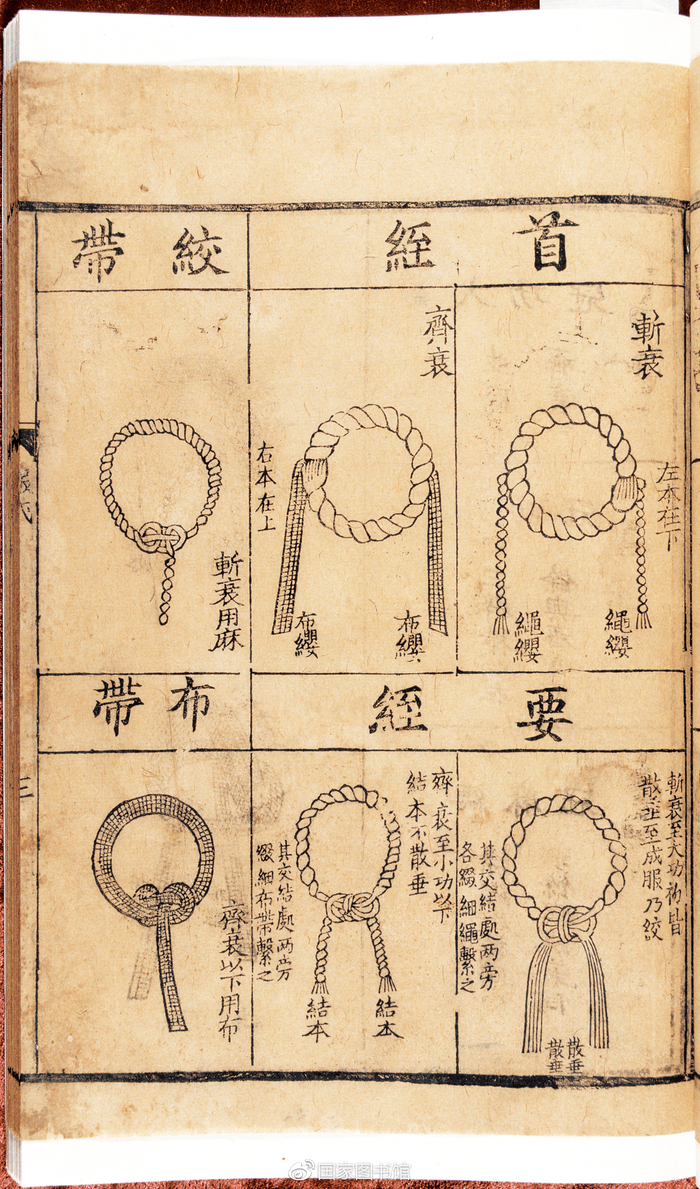 首絰
斬衰
左本在下
繩纓
繩纓
齊衰
右本在上
布纓
布纓
絞帶
斬衰用麻
要絰
斬衰至大功初皆
散垂至成服乃絞
其交結處兩旁
各綴細繩繫之
散垂
散垂
齊衰至小功以下
結本不散垂
其交結處兩旁
綴細布帶繫之
結本
結本
布帶
齊衰以下用布
三
国家图书馆